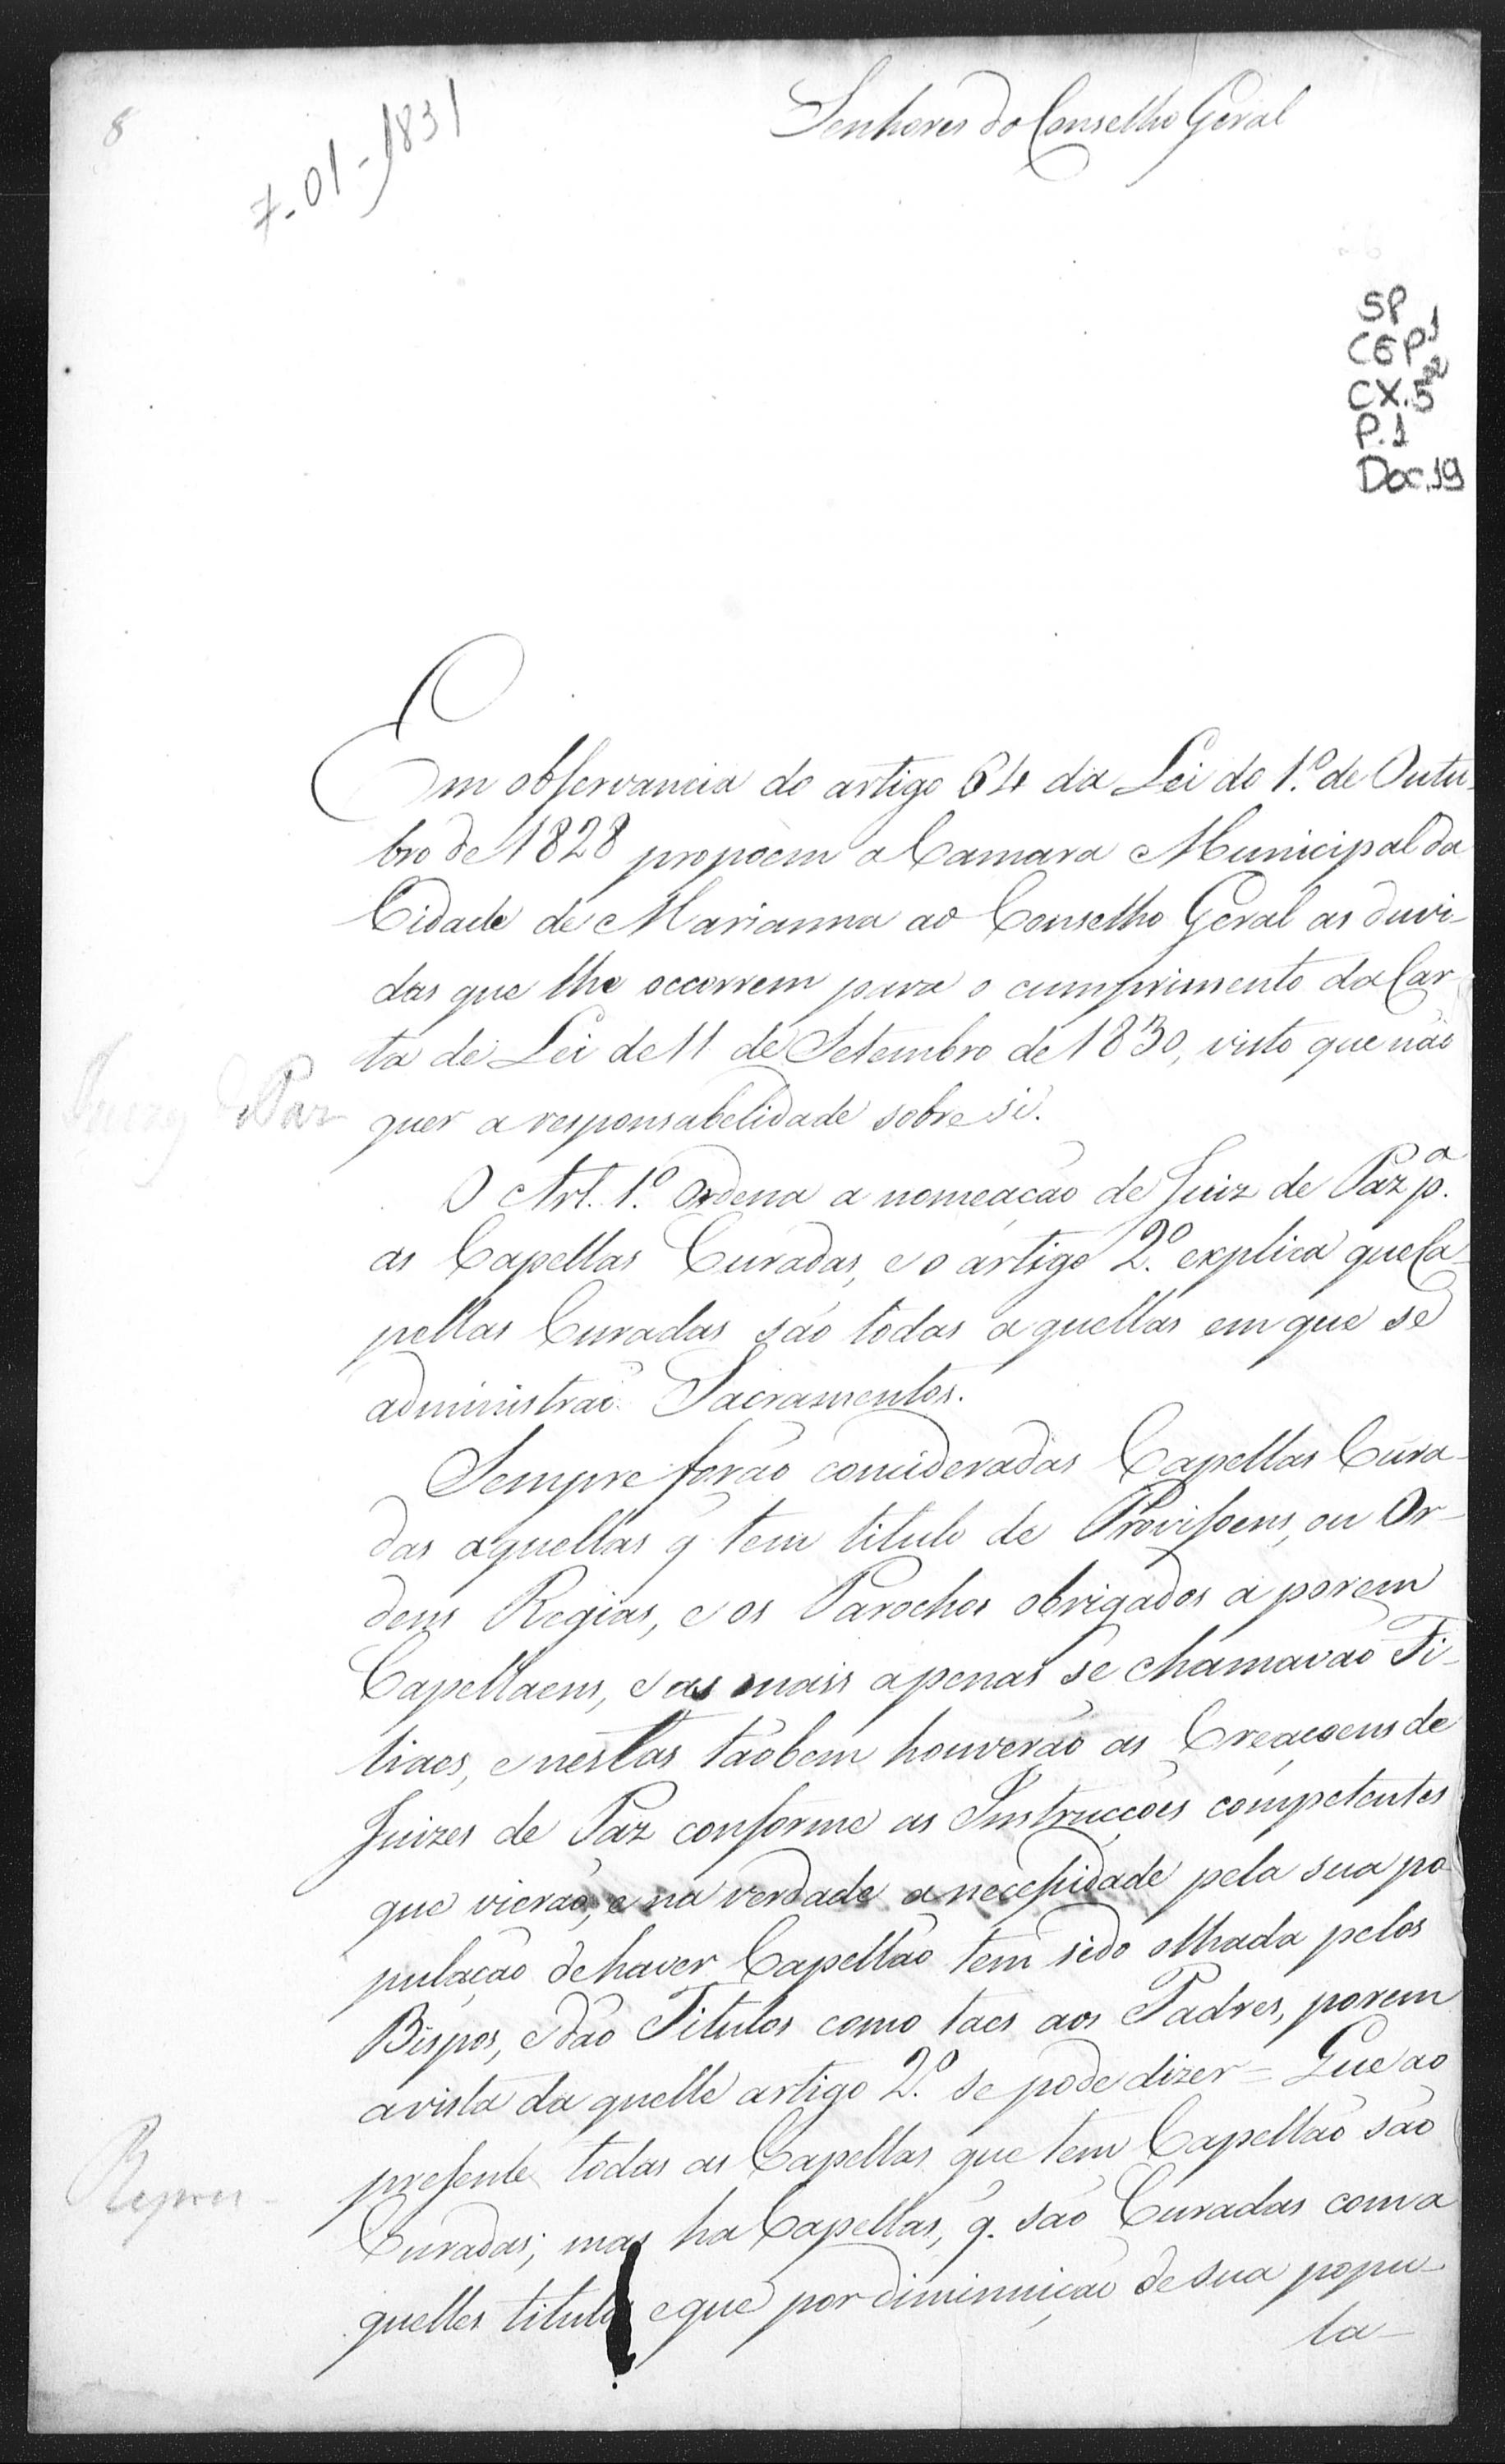 8
7-01-1831
Senhores do Conselho Geral
SP
CGP¹
CX.5
P.1
Doc.19
Em observancia do artigo 64 da Lei do 1.º de Outu-
bro de 1828 propoem a Camara Municipal da
Cidade de Marianna ao Conselho Geral as duvi-
das que lhe occorrem para o cumprimento da Car-
ta de Lei de 11 de Setembro de 1830, visto que não
quer a responsabelidade sobre si.
de Paz
O Art. 1.º Ordena a nomeação de Juiz de Paz p.ª
as Capellas Curadas, e o artigo 2.º explica que Ca-
pellas Curadas são todas aquellas em que se
administrão Sacramentos.
Sempre forão consideradas Capellas Cura-
das aquellas q̃ tem titulo de Provisoens, ou Or-
dens Regias, e os Parochos obrigados a porem
Capellaens, e as mais apenas se chamavão Fi-
liaes, e nestas tãobem houverão as Creaçoens de
Juizes de Paz conforme as Instrucções competentes
que vierão, e na verdade a necessidade pela sua po-
pulação de haver Capellão tem sido olhada pelos
Bispos, e dão Titulos como taes aos Padres, porem
avista da quelle artigo 2.º se pode dizer = Que ao
presente todas as Capellas que tem Capellão são
Curadas; mas ha Capellas, q. são Curadas com a
quelles titulos e que por diminuição de sua popu-
la-